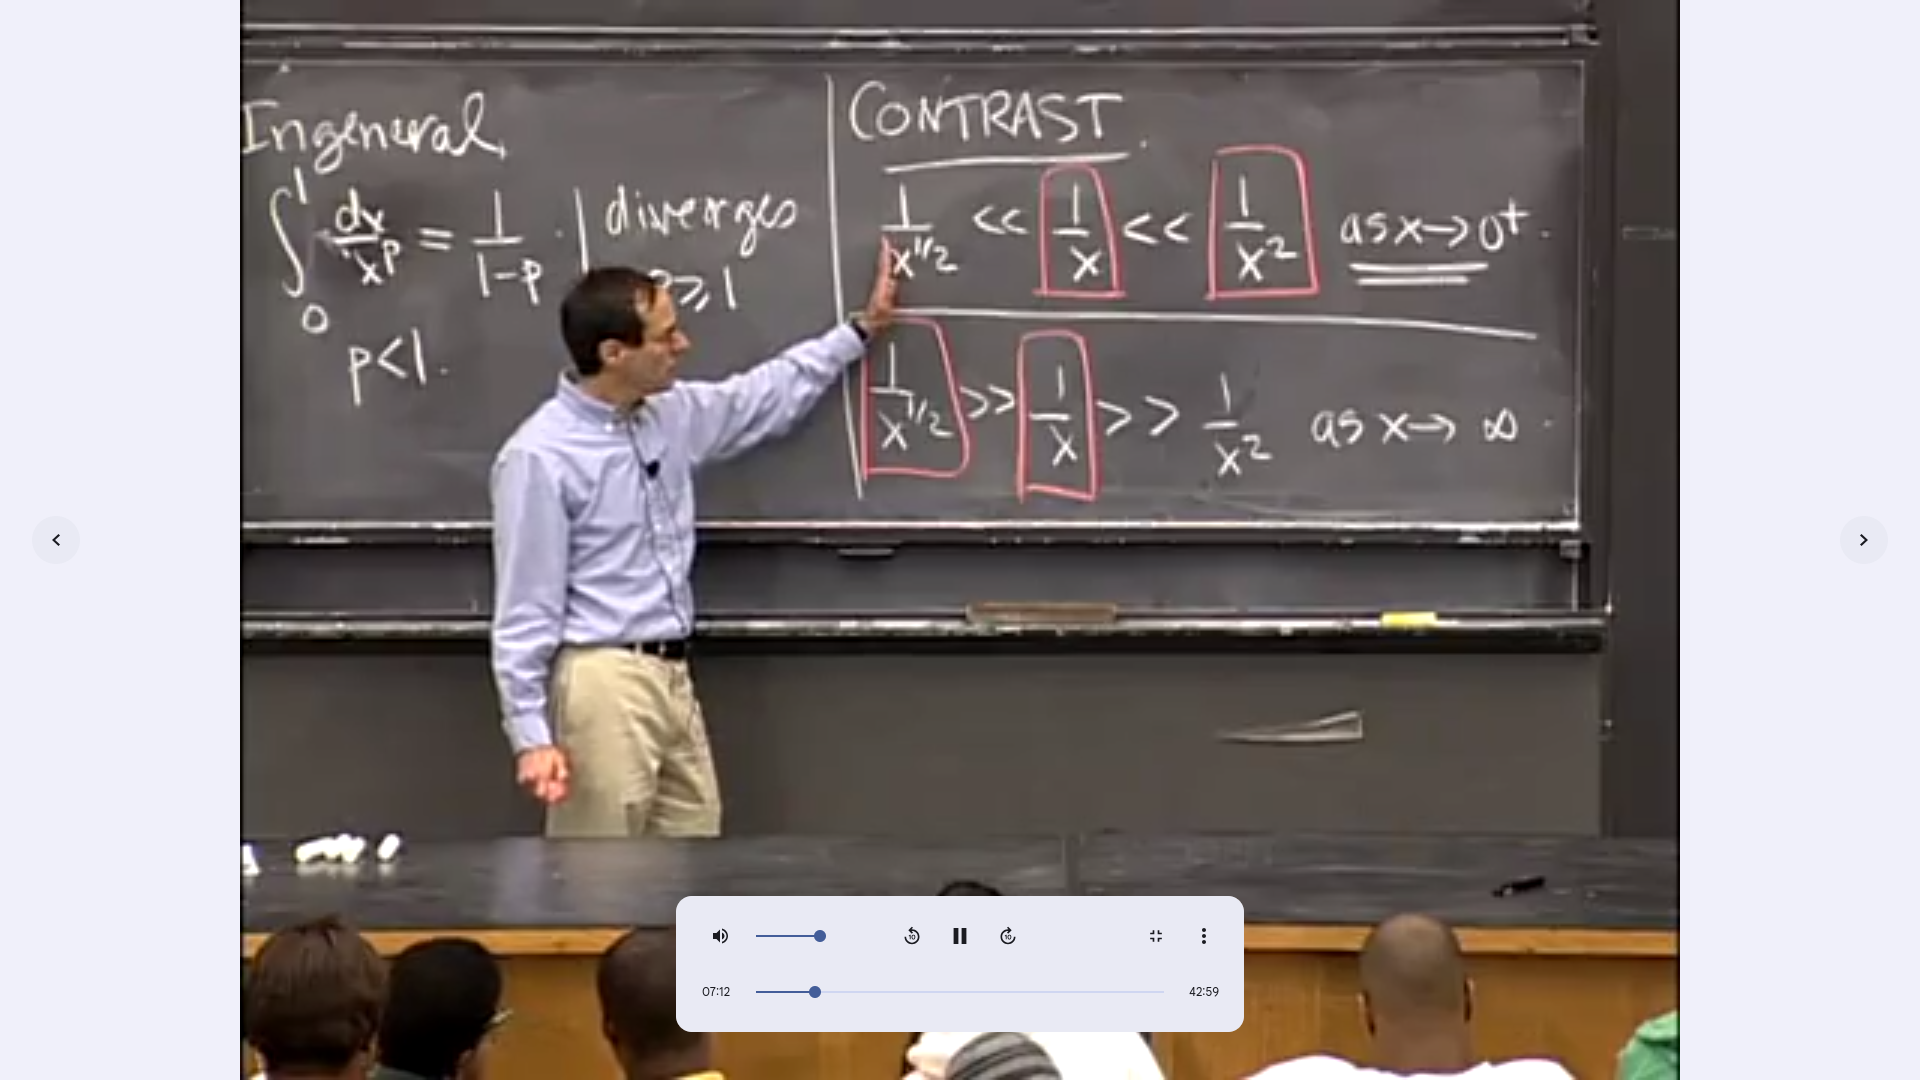 In general,
∫₀¹ dx/x^p = 1/(1-p) . | diverges
p<1. p ≥ 1
CONTRAST.
1/x^1/2 << 1/x << 1/x² as x→0⁺.
1/x^1/2 >> 1/x >> 1/x² as x→∞.
10 10
07:12 42:59